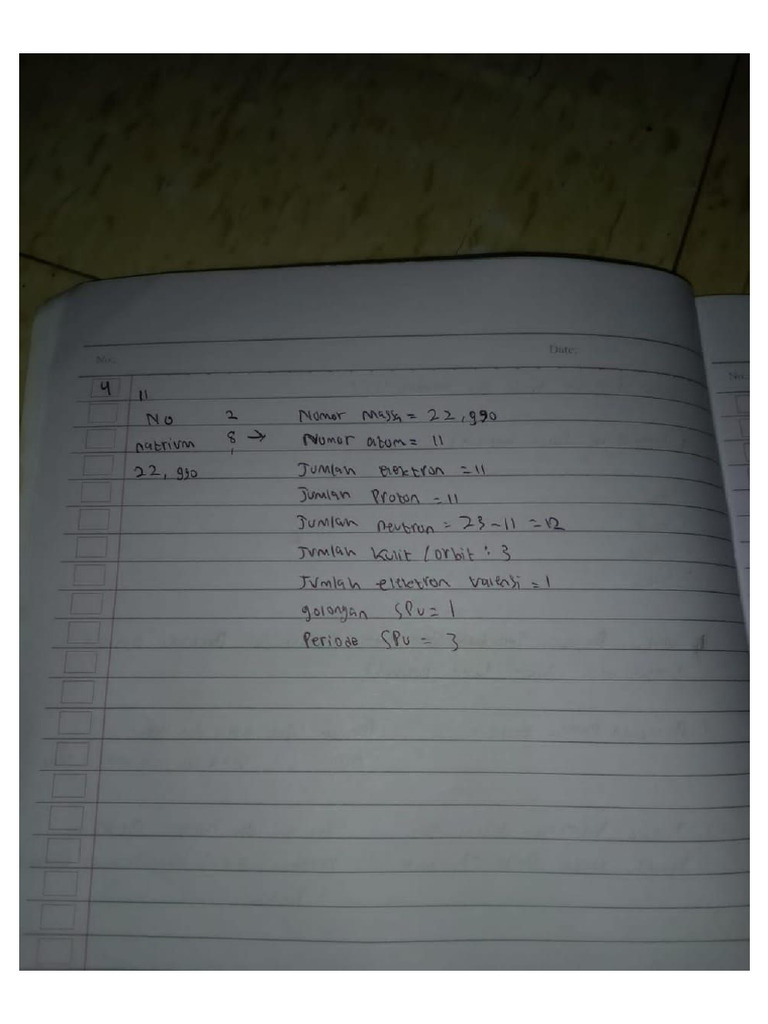 No.
Date:
No.
4
11
No 2 Nomor massa = 22,990
natrium 8 → Nomor atom = 11
1
22,990 Jumlah elektron = 11
Jumlah Proton = 11
Jumlah neutron = 23 - 11 = 12
Jumlah kulit / orbit : 3
Jumlah elektron valensi = 1
golongan SPU = 1
Periode SPU = 3